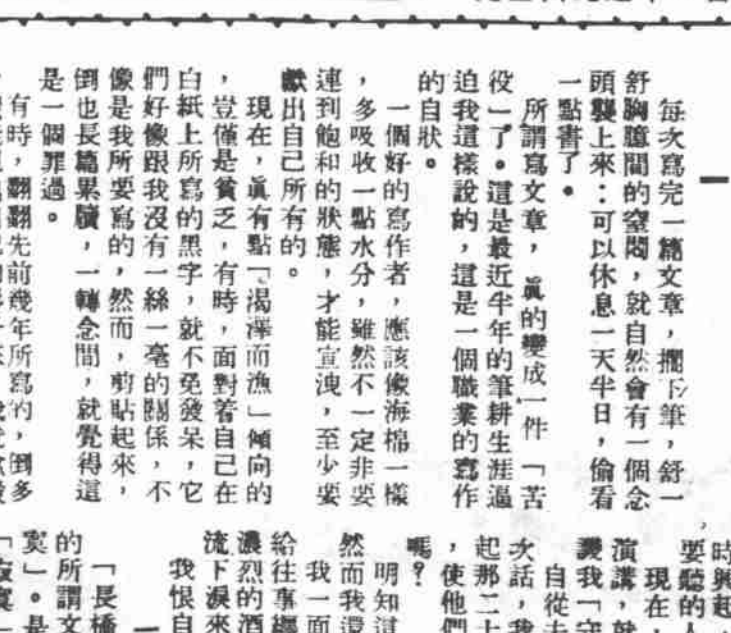 一
每次寫完一篇文章，擱下筆，舒一
舒胸臆間的窒悶，就自然會有一個念
頭襲上來：可以休息一天半日，偷看
一點書了。
所謂寫文章，眞的變成一件「苦
役」了。這是最近半年的筆耕生涯逼
迫我這樣說的，這是一個職業的寫作
的自狀。
一個好的寫作者，應該像海棉一樣
，多吸收一點水分，雖然不一定非要
連到飽和的狀態，才能宣洩，至少要
獻出自己所有的。
現在，眞有點「渴澤而漁」傾向的
，豈僅是貧乏，有時，面對着自己在
白紙上所寫的黑字，就不免發呆，它
們好像跟我沒有一絲一毫的關係，不
像是我所要寫的，然而，剪貼起來，
倒也長篇累牘，一轉念間，就覺得這
是一個罪過。
有時，翻翻先前幾年所寫的，倒多
時興起，
要聽的人
現在，
演講，就
我「守
自從去
次話，我
起那二十
，使他們
嗎？
明知這
然而我還
我一面
給往事
濃烈的酒
流下淚來
我恨自
一
「長橋
的所謂文
寞」。是
「寂寞